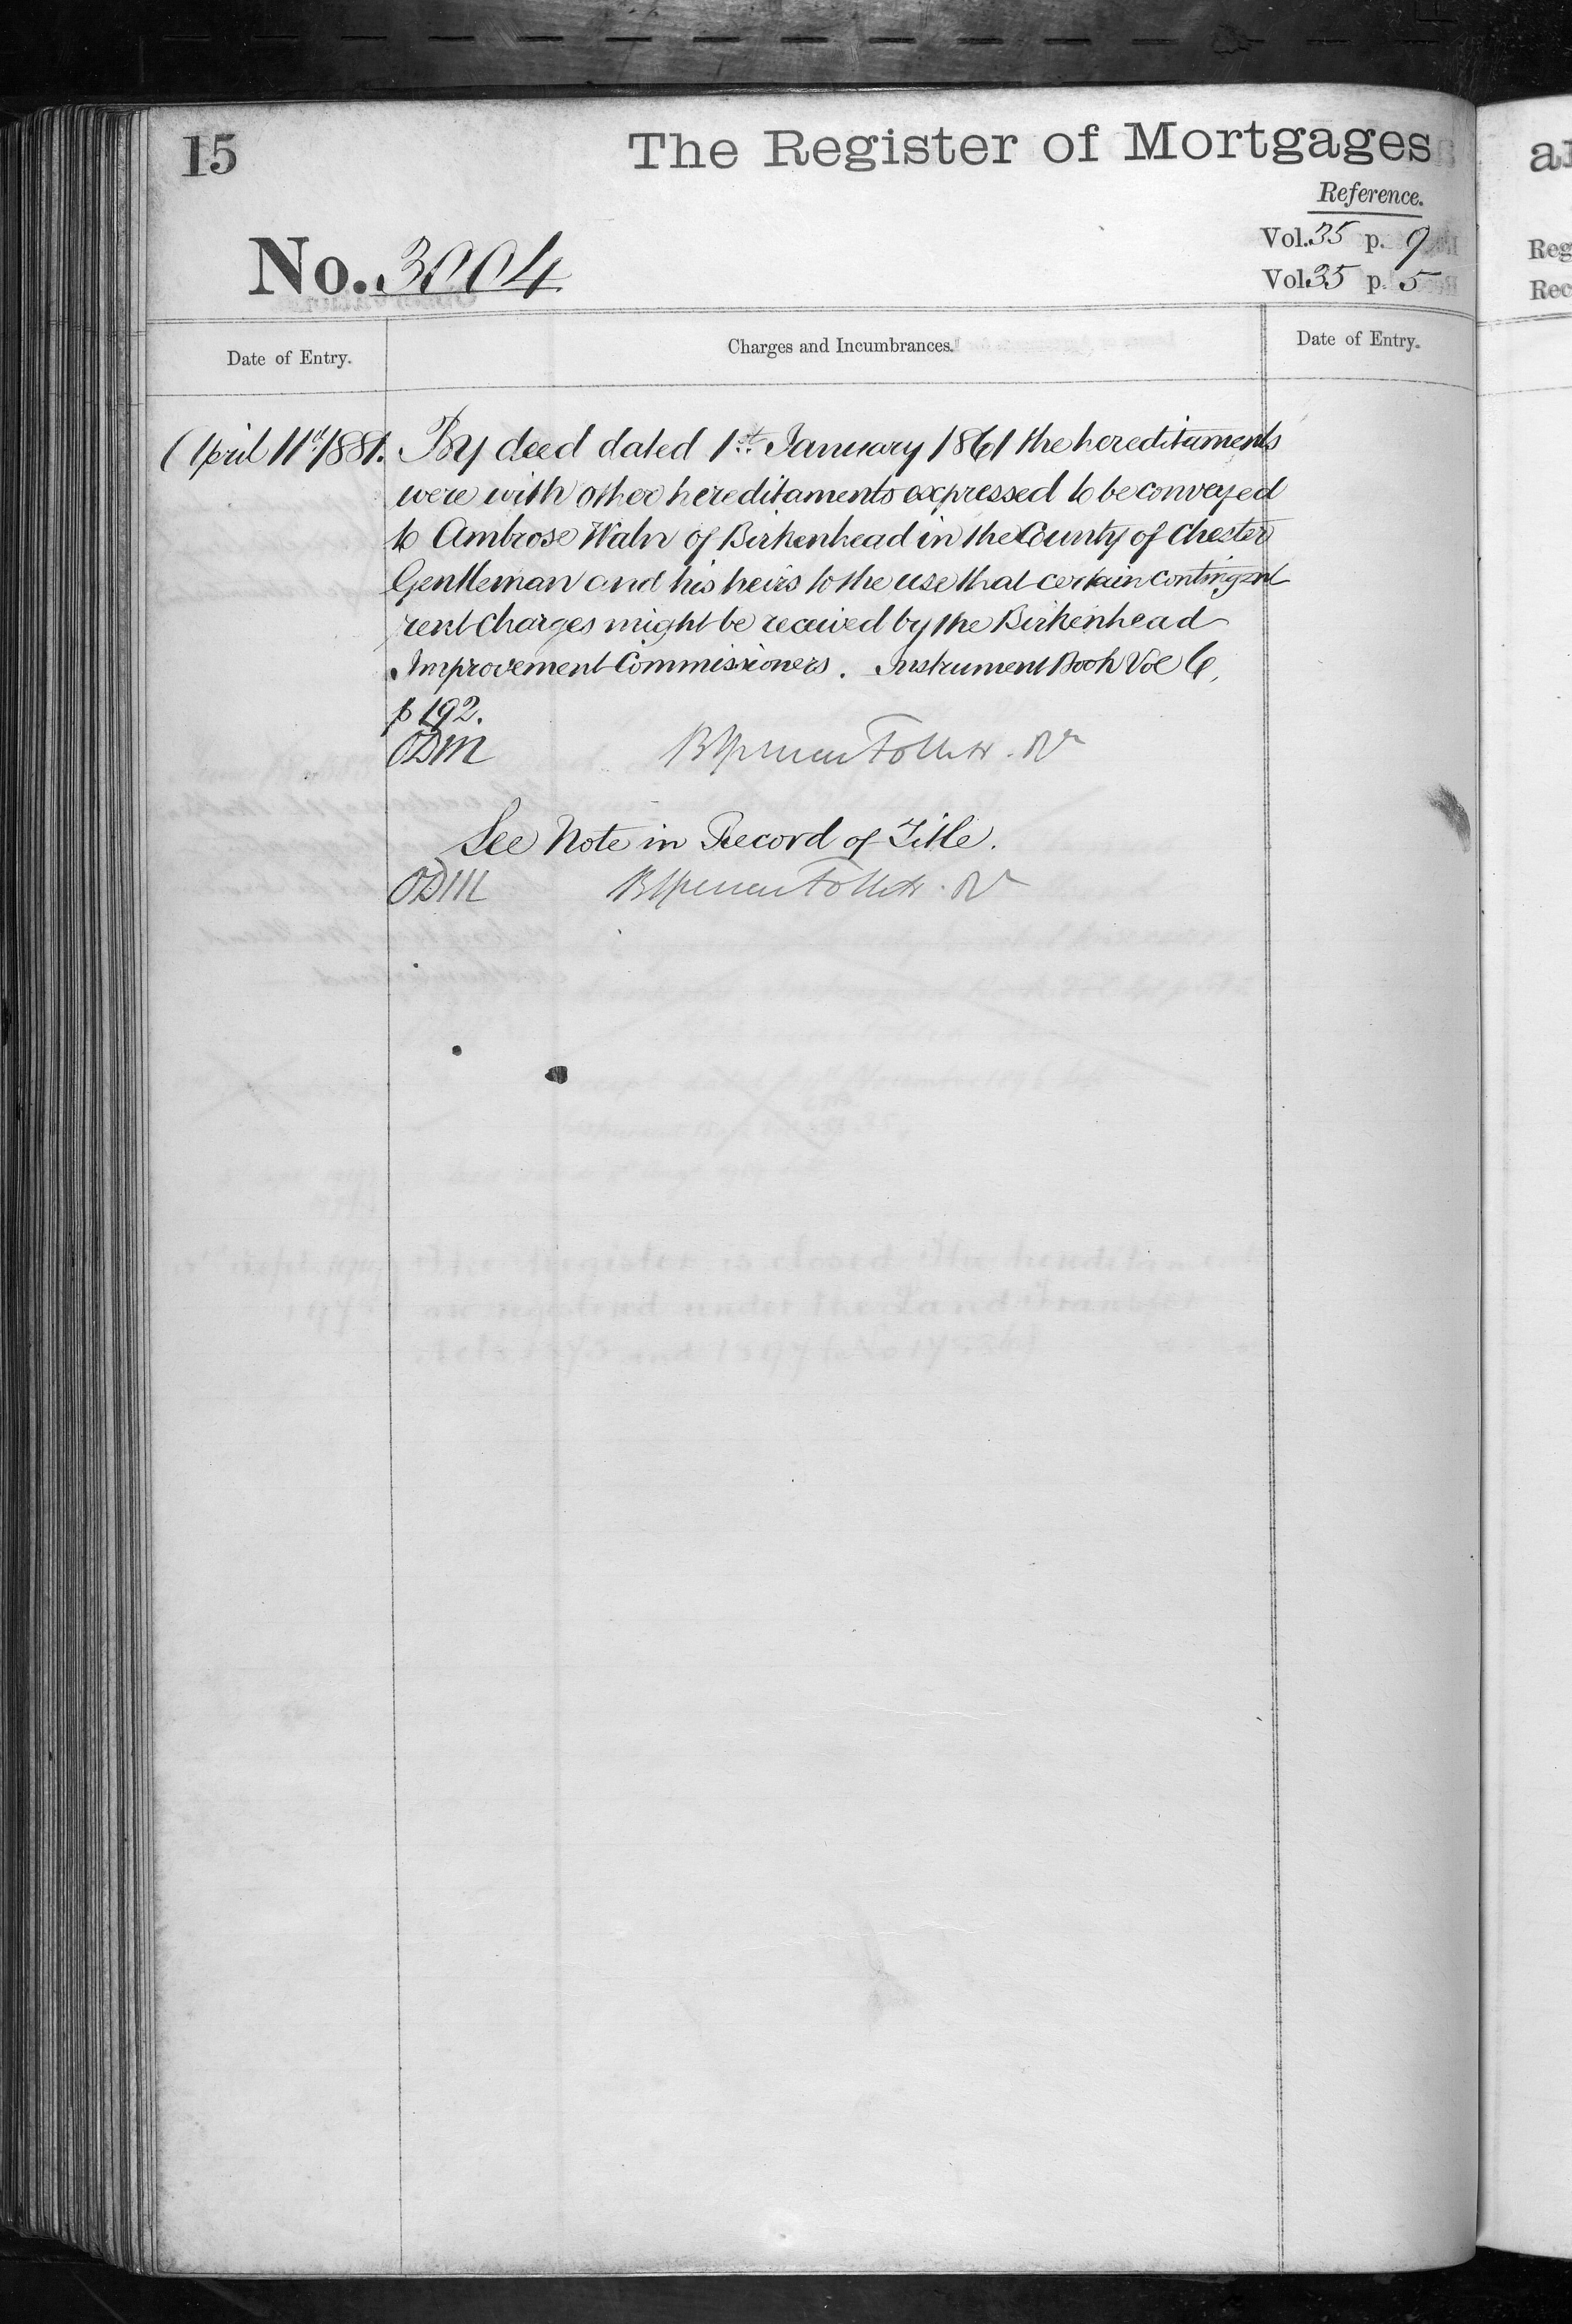 15
The Register of Mortgages
Reference.
Vol. 35 p. 9
No. 3004
Vol. 35 p. 5
Date of Entry.
Charges and Incumbrances.
Date of Entry.
April 11th 1881. By deed dated 1st January 1861 the hereditaments
were with other hereditaments expressed to be conveyed
to Ambrose Waln of Birkenhead in the County of Chester
Gentleman and his heirs to the use that certain contingent
rent charges might be received by the Birkenhead
Improvement Commissioners. Instrument Book Vol 6,
p 192.
ODM
See Note in Record of Title.
ODM
Reg
Rec